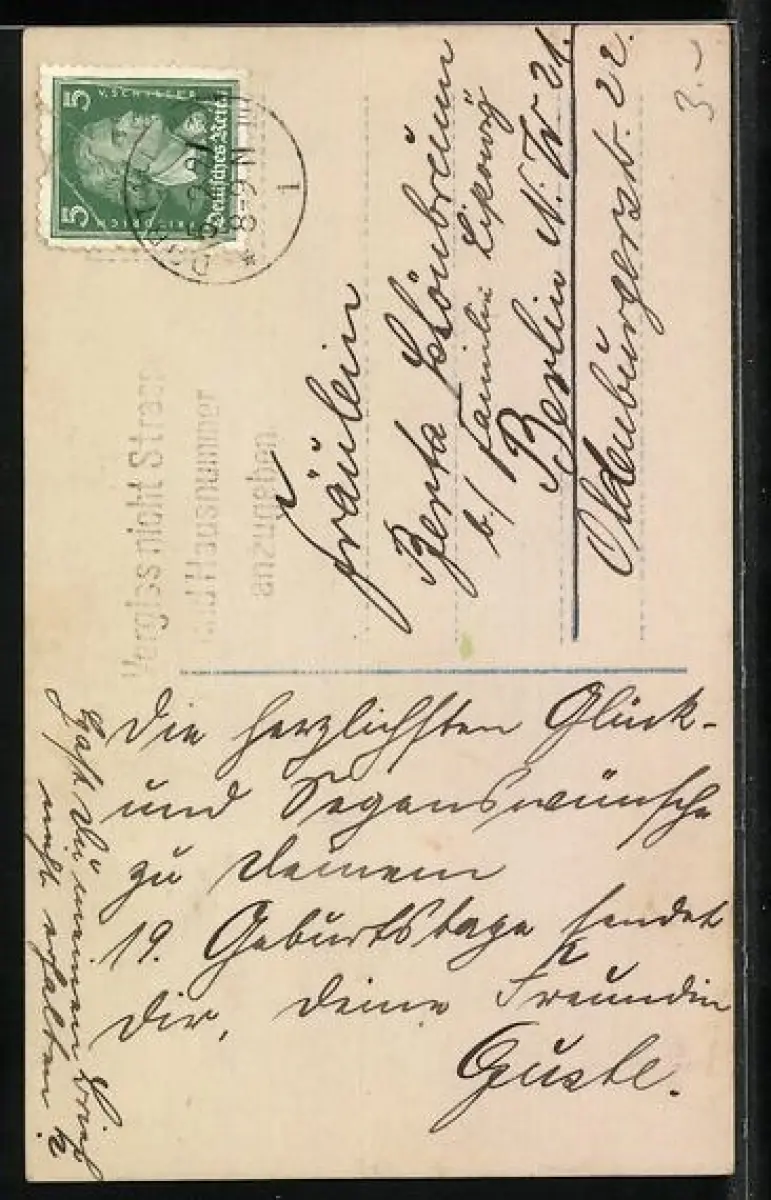 5 V. SCHILLER
5 FRIEDRICH
Deutsches Reich
8-9 N
1
3.-
Vergiss nicht Strasse
und Hausnummer
anzugeben
Fräulein
Berta Schönbrunn
b/ Familie
Berlin N.W 21.
Oldenburgerstr. 22.
Die herzlichsten Glück-
und Segenswünsche
zu Deinem
19. Geburtstage sendet
Dir, Deine Freundin
Guste.
Hast Du meinen Brief
nicht erhalten?